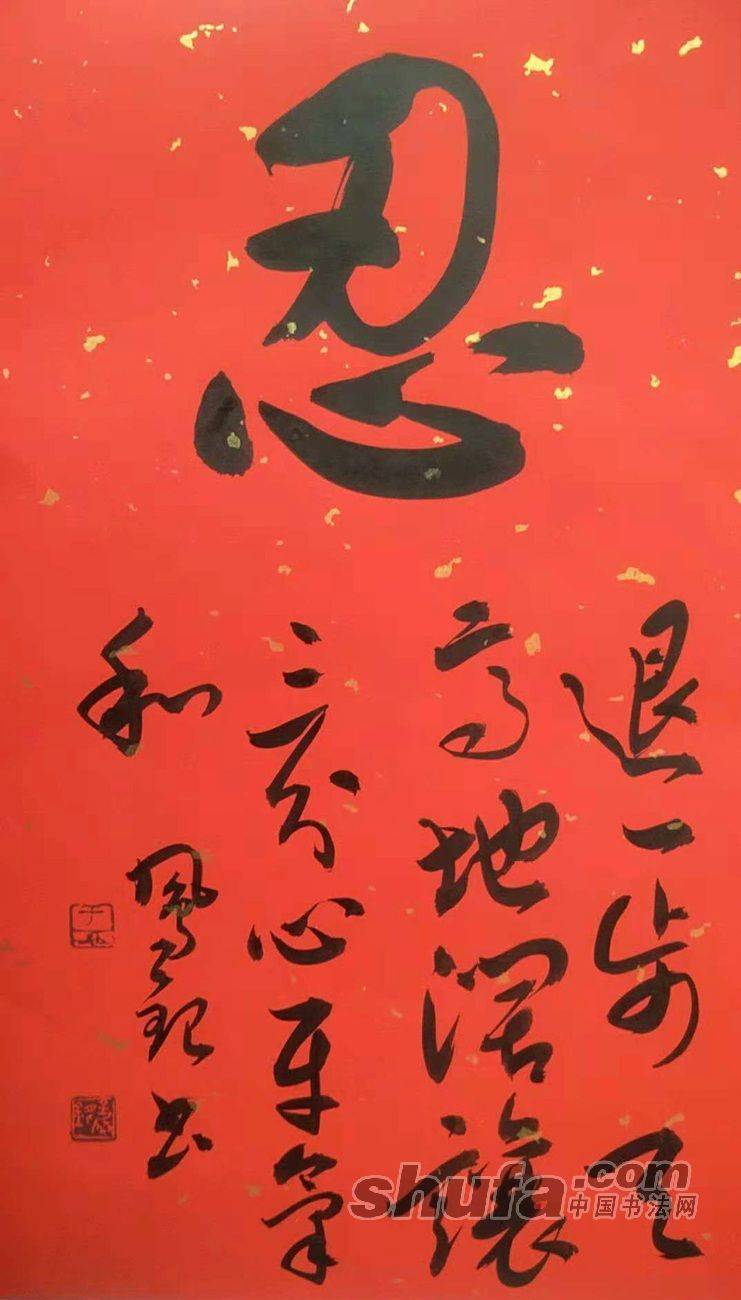 忍
退一步天
高地阔讓
三分心平氣
和
鳳
书
shufa.com
中国书法网